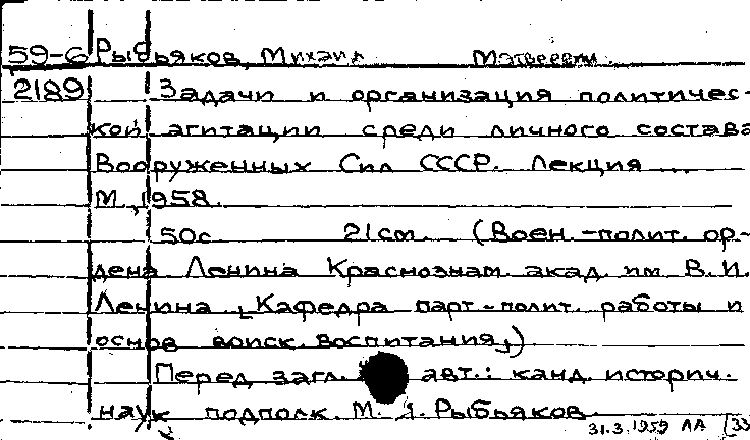 59-6 Рыбьяков, Михаил Матвеевич.
2189 Задачи и организация политичес-
кой агитации среди личного состава
Вооруженных Сил СССР. Лекция ...
М., 1958.
50с. 21см. (Воен.-полит. ор-
дена Ленина Краснознам. акад. им. В.И.
Ленина. [Кафедра парт.-полит. работы и
основ воиск. воспитания])
Перед загл. авт.: канд. историч.
наук подполк. М. Рыбьяков.
31.3.1959 ЛА